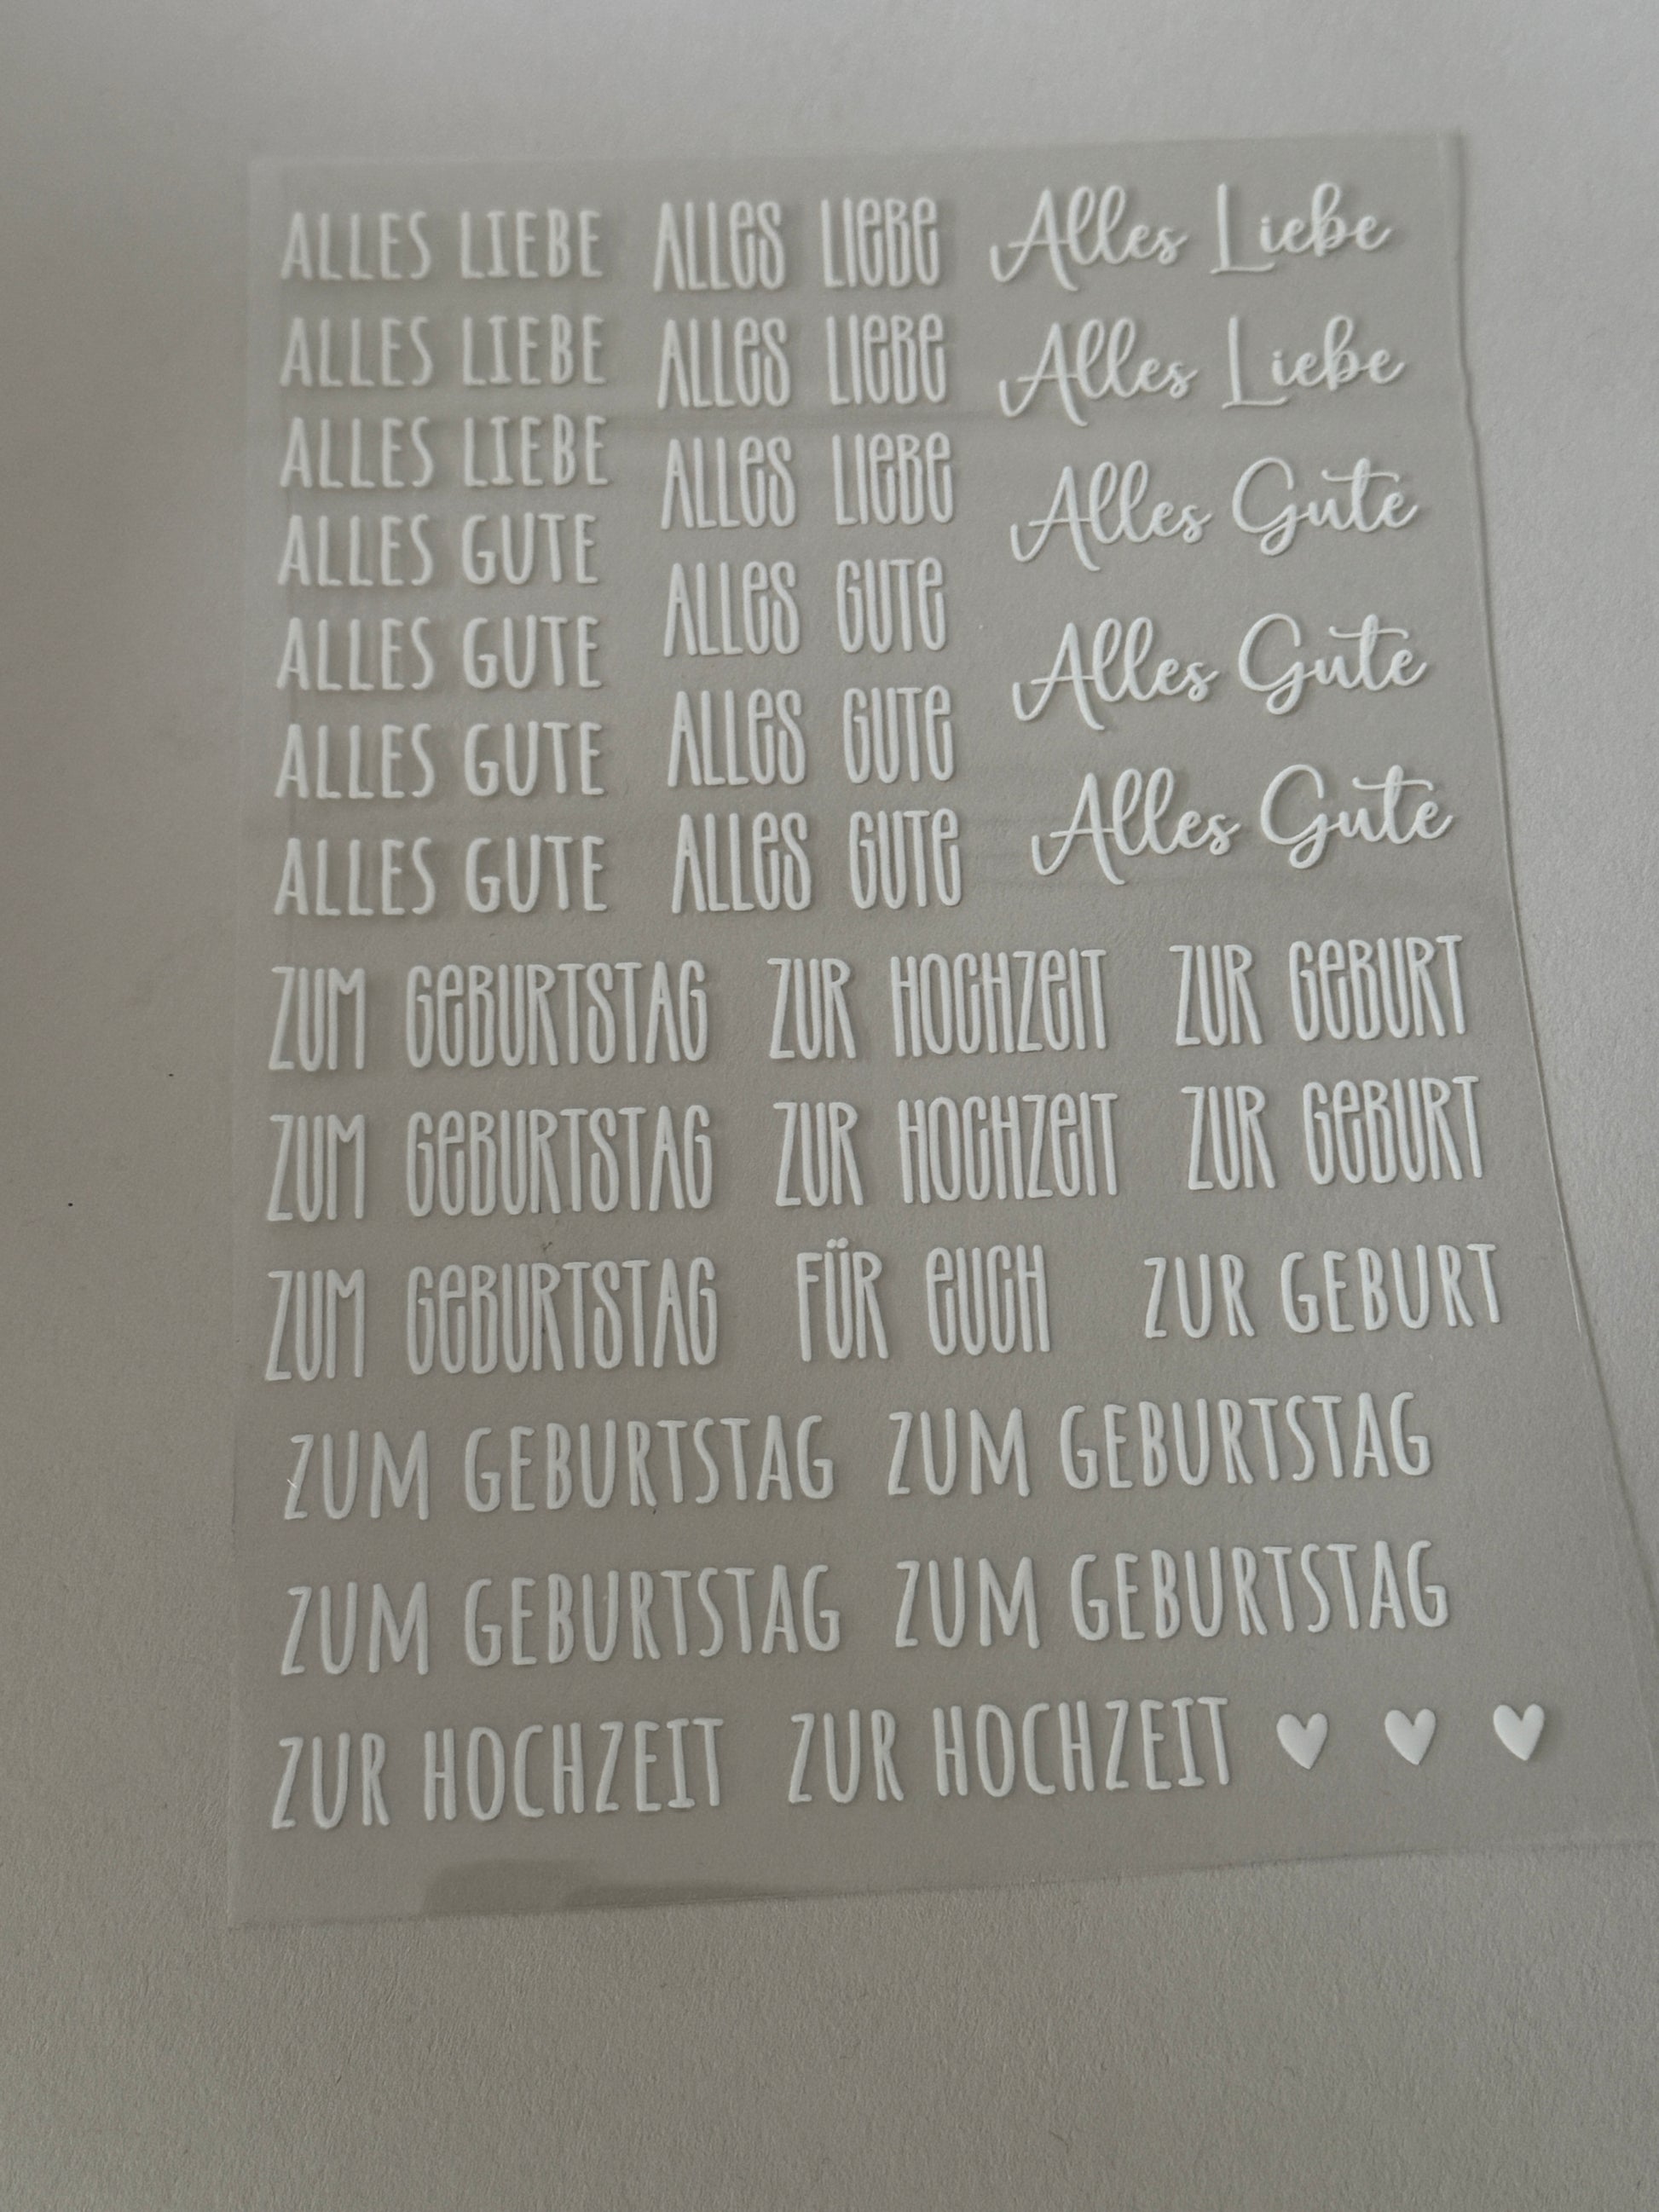 ALLES LIEBE ALLES LIEBE Alles Liebe
ALLES LIEBE ALLES LIEBE Alles Liebe
ALLES LIEBE ALLES LIEBE Alles Gute
ALLES GUTE ALLES GUTE Alles Gute
ALLES GUTE ALLES GUTE Alles Gute
ALLES GUTE ALLES GUTE
ALLES GUTE
ZUM GEBURTSTAG ZUR HOCHZEIT ZUR GEBURT
ZUM GEBURTSTAG ZUR HOCHZEIT ZUR GEBURT
ZUM GEBURTSTAG FÜR EUCH ZUR GEBURT
ZUM GEBURTSTAG ZUM GEBURTSTAG
ZUM GEBURTSTAG ZUM GEBURTSTAG
ZUR HOCHZEIT ZUR HOCHZEIT